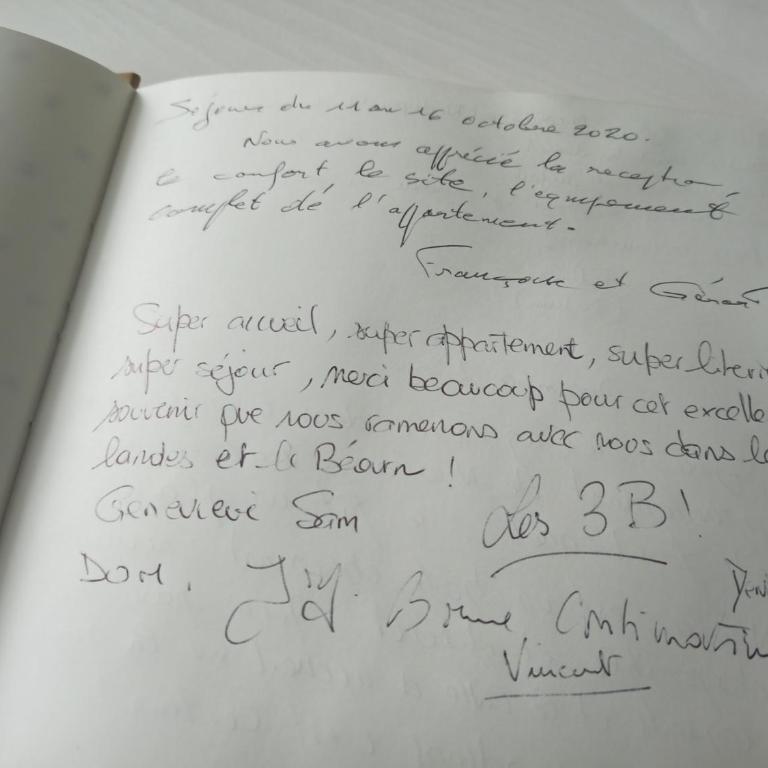 Séjour du 11 au 16 octobre 2020.
Nous avons apprécié la reception,
le confort le site, l'equipement
complet dé l'appartement.
Françoise et Gérard
Super accueil, super appartement, super literie
super séjour, merci beaucoup pour cet excelle
souvenir que nous ramenons avec nous dans le
landes et le Béarn !
Genevieve Sam
Les 3B!
DOM. JY. Bonne Continuation
Vincent